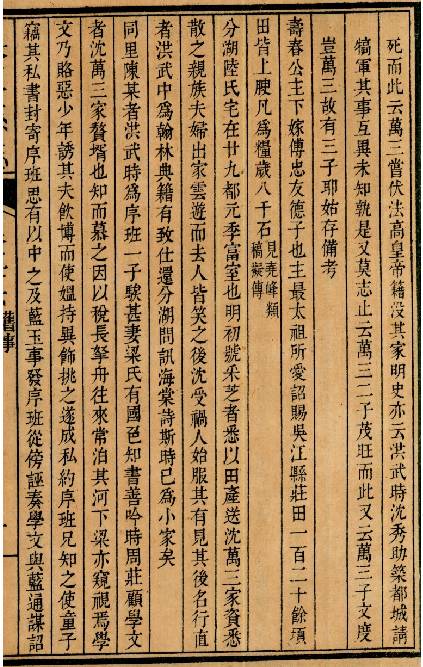 死而此云萬三嘗伏法高皇帝籍没其家明史亦云洪武時沈秀助築都城請
犒軍其事互異未知孰是又莫志止云萬三二子茂旺而此又云萬三子文度
豈萬三故有三子耶姑存備考
壽春公主下嫁傅忠友德子也主最太祖所愛詔賜吳江縣莊田一百二十餘頃
田皆上腴凡爲糧歲八千石見堯峰類稿擬傳
分湖陸氏宅在廿九都元季富室也明初號釆芝者悉以田產送沈萬三家貲悉
散之親族夫婦出家雲遊而去人皆笑之後沈受禍人始服其有見其後名行直
者洪武中爲翰林典籍有致仕還分湖問訊海棠詩斯時已爲小家矣
同里陳某者洪武時爲序班一子騃甚妻梁氏有國色知書善吟時周莊顧學文
者沈萬三家贅壻也知而慕之因以稅長拏舟往來常泊其河下梁亦窺視焉學
文乃賂惡少年誘其夫飲博而使媼持異飾挑之遂成私約序班兄知之使童子
竊其私書封寄序班思有以中之及藍玉事發序班從傍誣奏學文與藍通謀詔
舊事